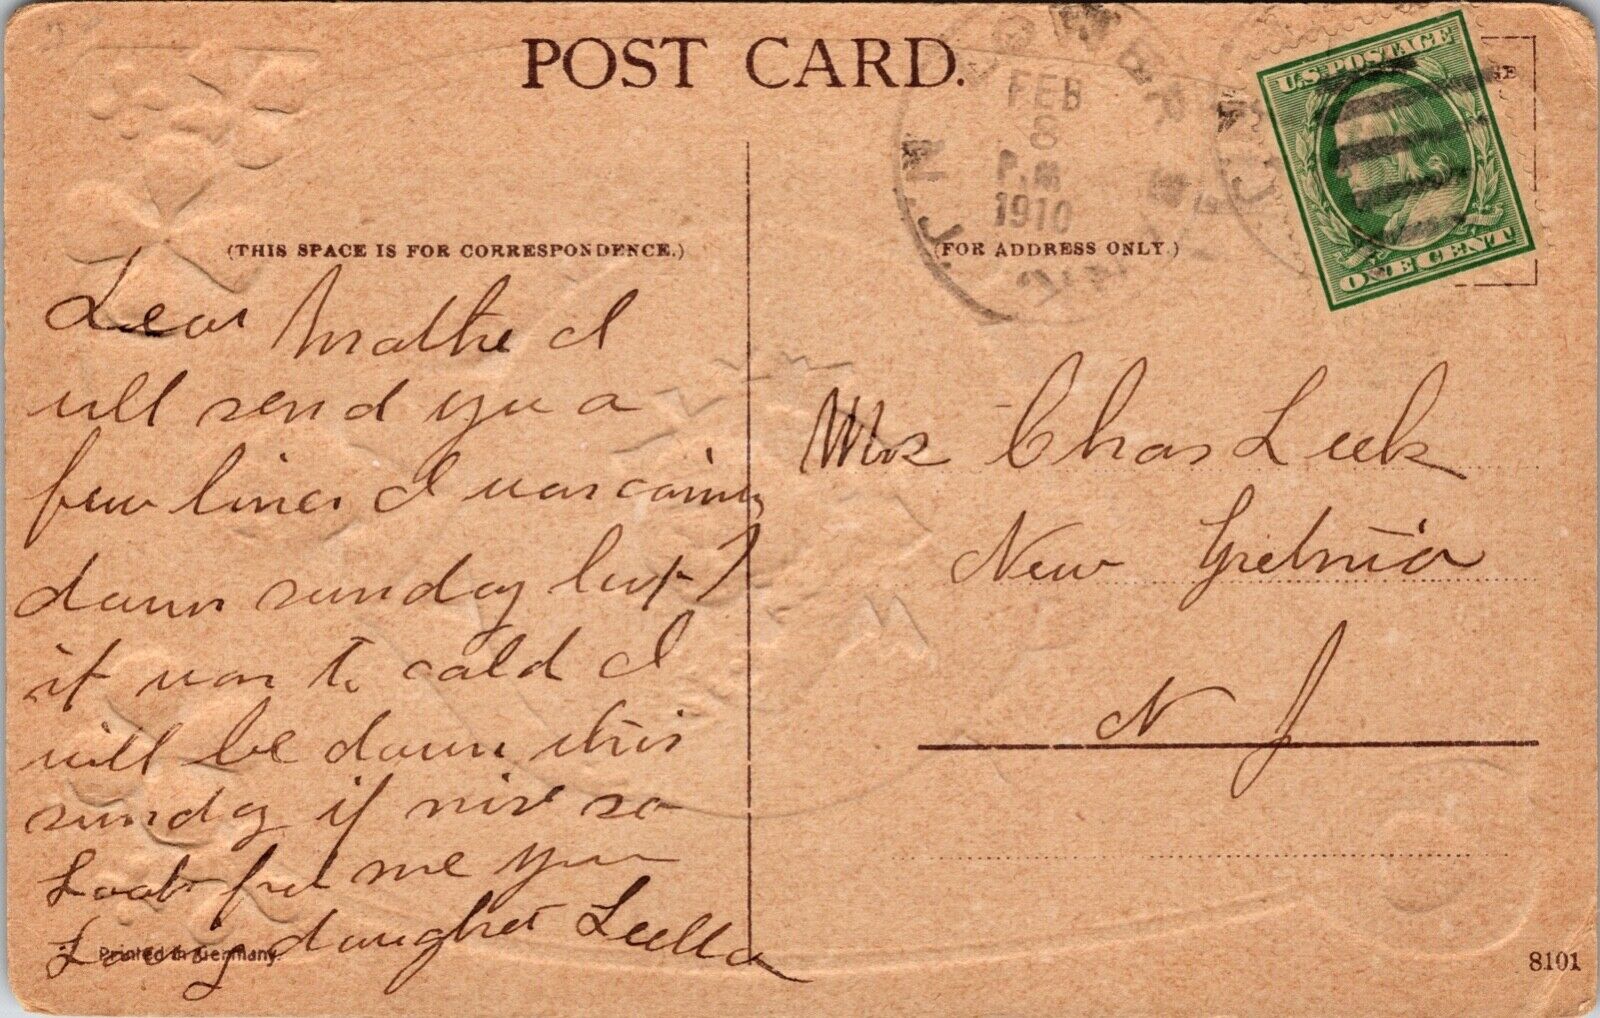 POST CARD.
FEB
8
P.M
1910
N.J.
U.S. POSTAGE
ONE CENT
(THIS SPACE IS FOR CORRESPONDENCE.)
(FOR ADDRESS ONLY.)
Dear Mothe I
will send you a
few lines I was coming
down sunday but
it was to cald I
will be down this
sunday if nise so
Look for me your
Loving daughter Luella
Mrs Chas Leek
New Gretnia
N J
Printed in Germany.
8101